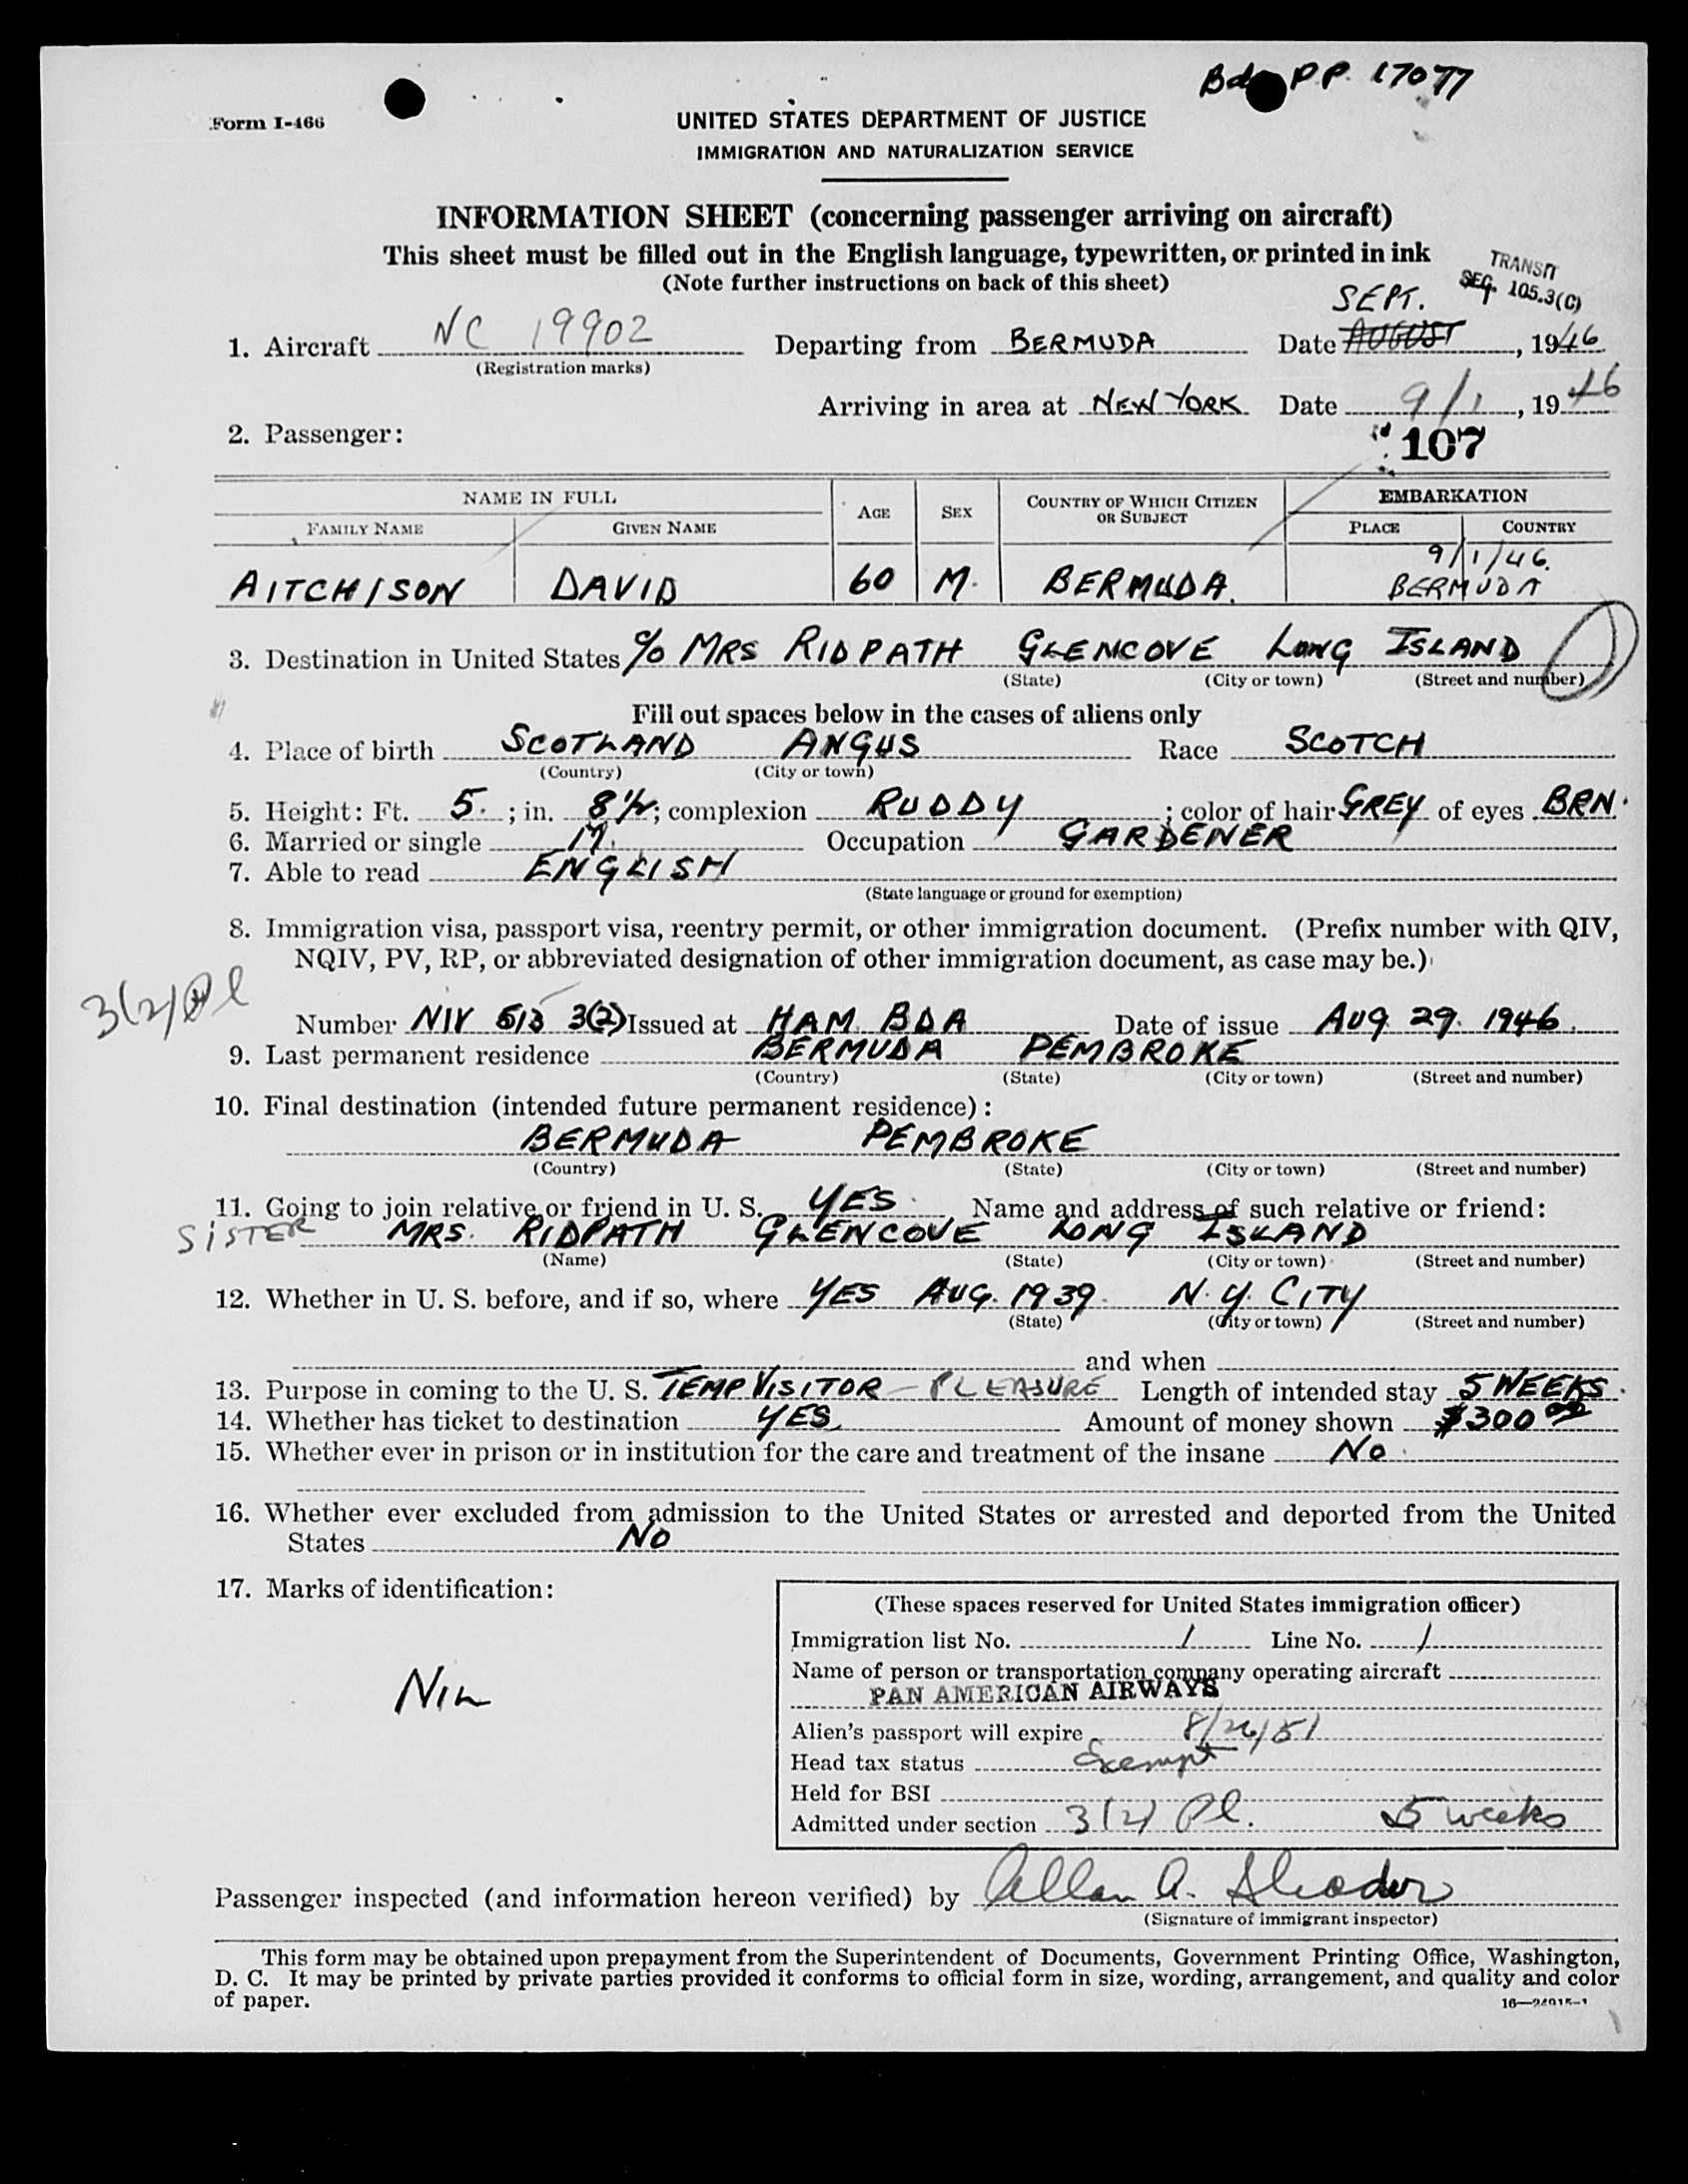 Bda P.P. 17077
Form I-466
UNITED STATES DEPARTMENT OF JUSTICE
IMMIGRATION AND NATURALIZATION SERVICE
INFORMATION SHEET (concerning passenger arriving on aircraft)
This sheet must be filled out in the English language, typewritten, or printed in ink
(Note further instructions on back of this sheet)
TRANSIT
SEC. 105.3(C)
SEPT.
1. Aircraft NC 19902 Departing from BERMUDA Date AUGUST, 1946
(Registration marks)
Arriving in area at NEW YORK Date 9/1, 1946
2. Passenger:
107
NAME IN FULL AGE SEX COUNTRY OF WHICH CITIZEN OR SUBJECT EMBARKATION
FAMILY NAME GIVEN NAME PLACE COUNTRY
9/1/46.
AITCHISON DAVID 60 M. BERMUDA. BERMUDA
3. Destination in United States c/o MRS RIDPATH GLENCOVE LONG ISLAND
(State) (City or town) (Street and number)
Fill out spaces below in the cases of aliens only
4. Place of birth SCOTLAND ANGUS Race SCOTCH
(Country) (City or town)
5. Height: Ft. 5. ; in. 8½; complexion RUDDY ; color of hair GREY of eyes BRN.
6. Married or single M. Occupation GARDENER
7. Able to read ENGLISH
(State language or ground for exemption)
8. Immigration visa, passport visa, reentry permit, or other immigration document. (Prefix number with QIV,
NQIV, PV, RP, or abbreviated designation of other immigration document, as case may be.)
3(2) Pl
Number NIV 513 3(2) Issued at HAM BDA Date of issue AUG 29. 1946.
9. Last permanent residence BERMUDA PEMBROKE
(Country) (State) (City or town) (Street and number)
10. Final destination (intended future permanent residence):
BERMUDA PEMBROKE
(Country) (State) (City or town) (Street and number)
11. Going to join relative or friend in U. S. YES. Name and address of such relative or friend:
SISTER MRS. RIDPATH GLENCOVE LONG ISLAND
(Name) (State) (City or town) (Street and number)
12. Whether in U. S. before, and if so, where YES AUG. 1939. N.Y. CITY
(State) (City or town) (Street and number)
and when
13. Purpose in coming to the U. S. TEMP VISITOR - PLEASURE Length of intended stay 5 WEEKS.
14. Whether has ticket to destination YES Amount of money shown $300 00
15. Whether ever in prison or in institution for the care and treatment of the insane No.
16. Whether ever excluded from admission to the United States or arrested and deported from the United
States No
17. Marks of identification:
NIL
(These spaces reserved for United States immigration officer)
Immigration list No. 1 Line No. 1
Name of person or transportation company operating aircraft
PAN AMERICAN AIRWAYS
Alien's passport will expire 8/26/51
Head tax status Exempt
Held for BSI
Admitted under section 3(2) Pl. 5 weeks
Passenger inspected (and information hereon verified) by Allan A.
(Signature of immigrant inspector)
This form may be obtained upon prepayment from the Superintendent of Documents, Government Printing Office, Washington,
D. C. It may be printed by private parties provided it conforms to official form in size, wording, arrangement, and quality and color
of paper.